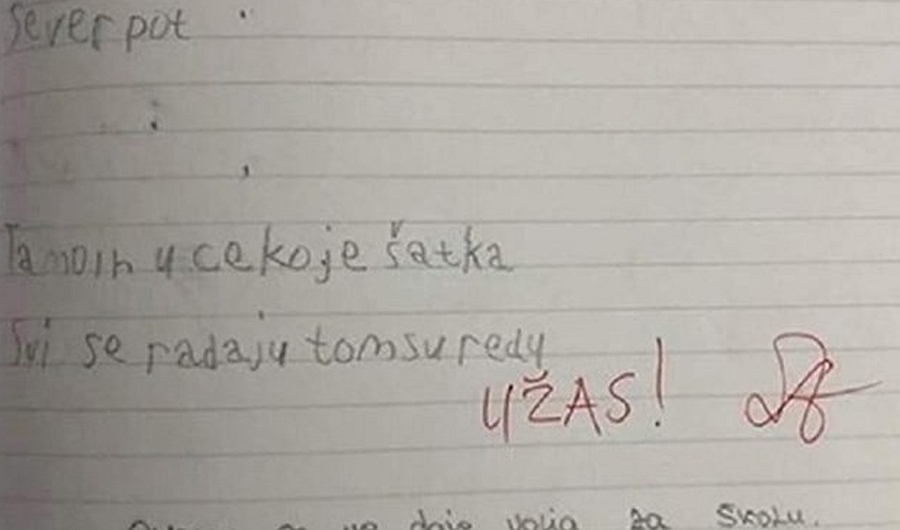 Sever pot
Tamoih u cekoje šatka
Svi se radaju tomsu redu
UŽAS!
se ne daje volja za školu.